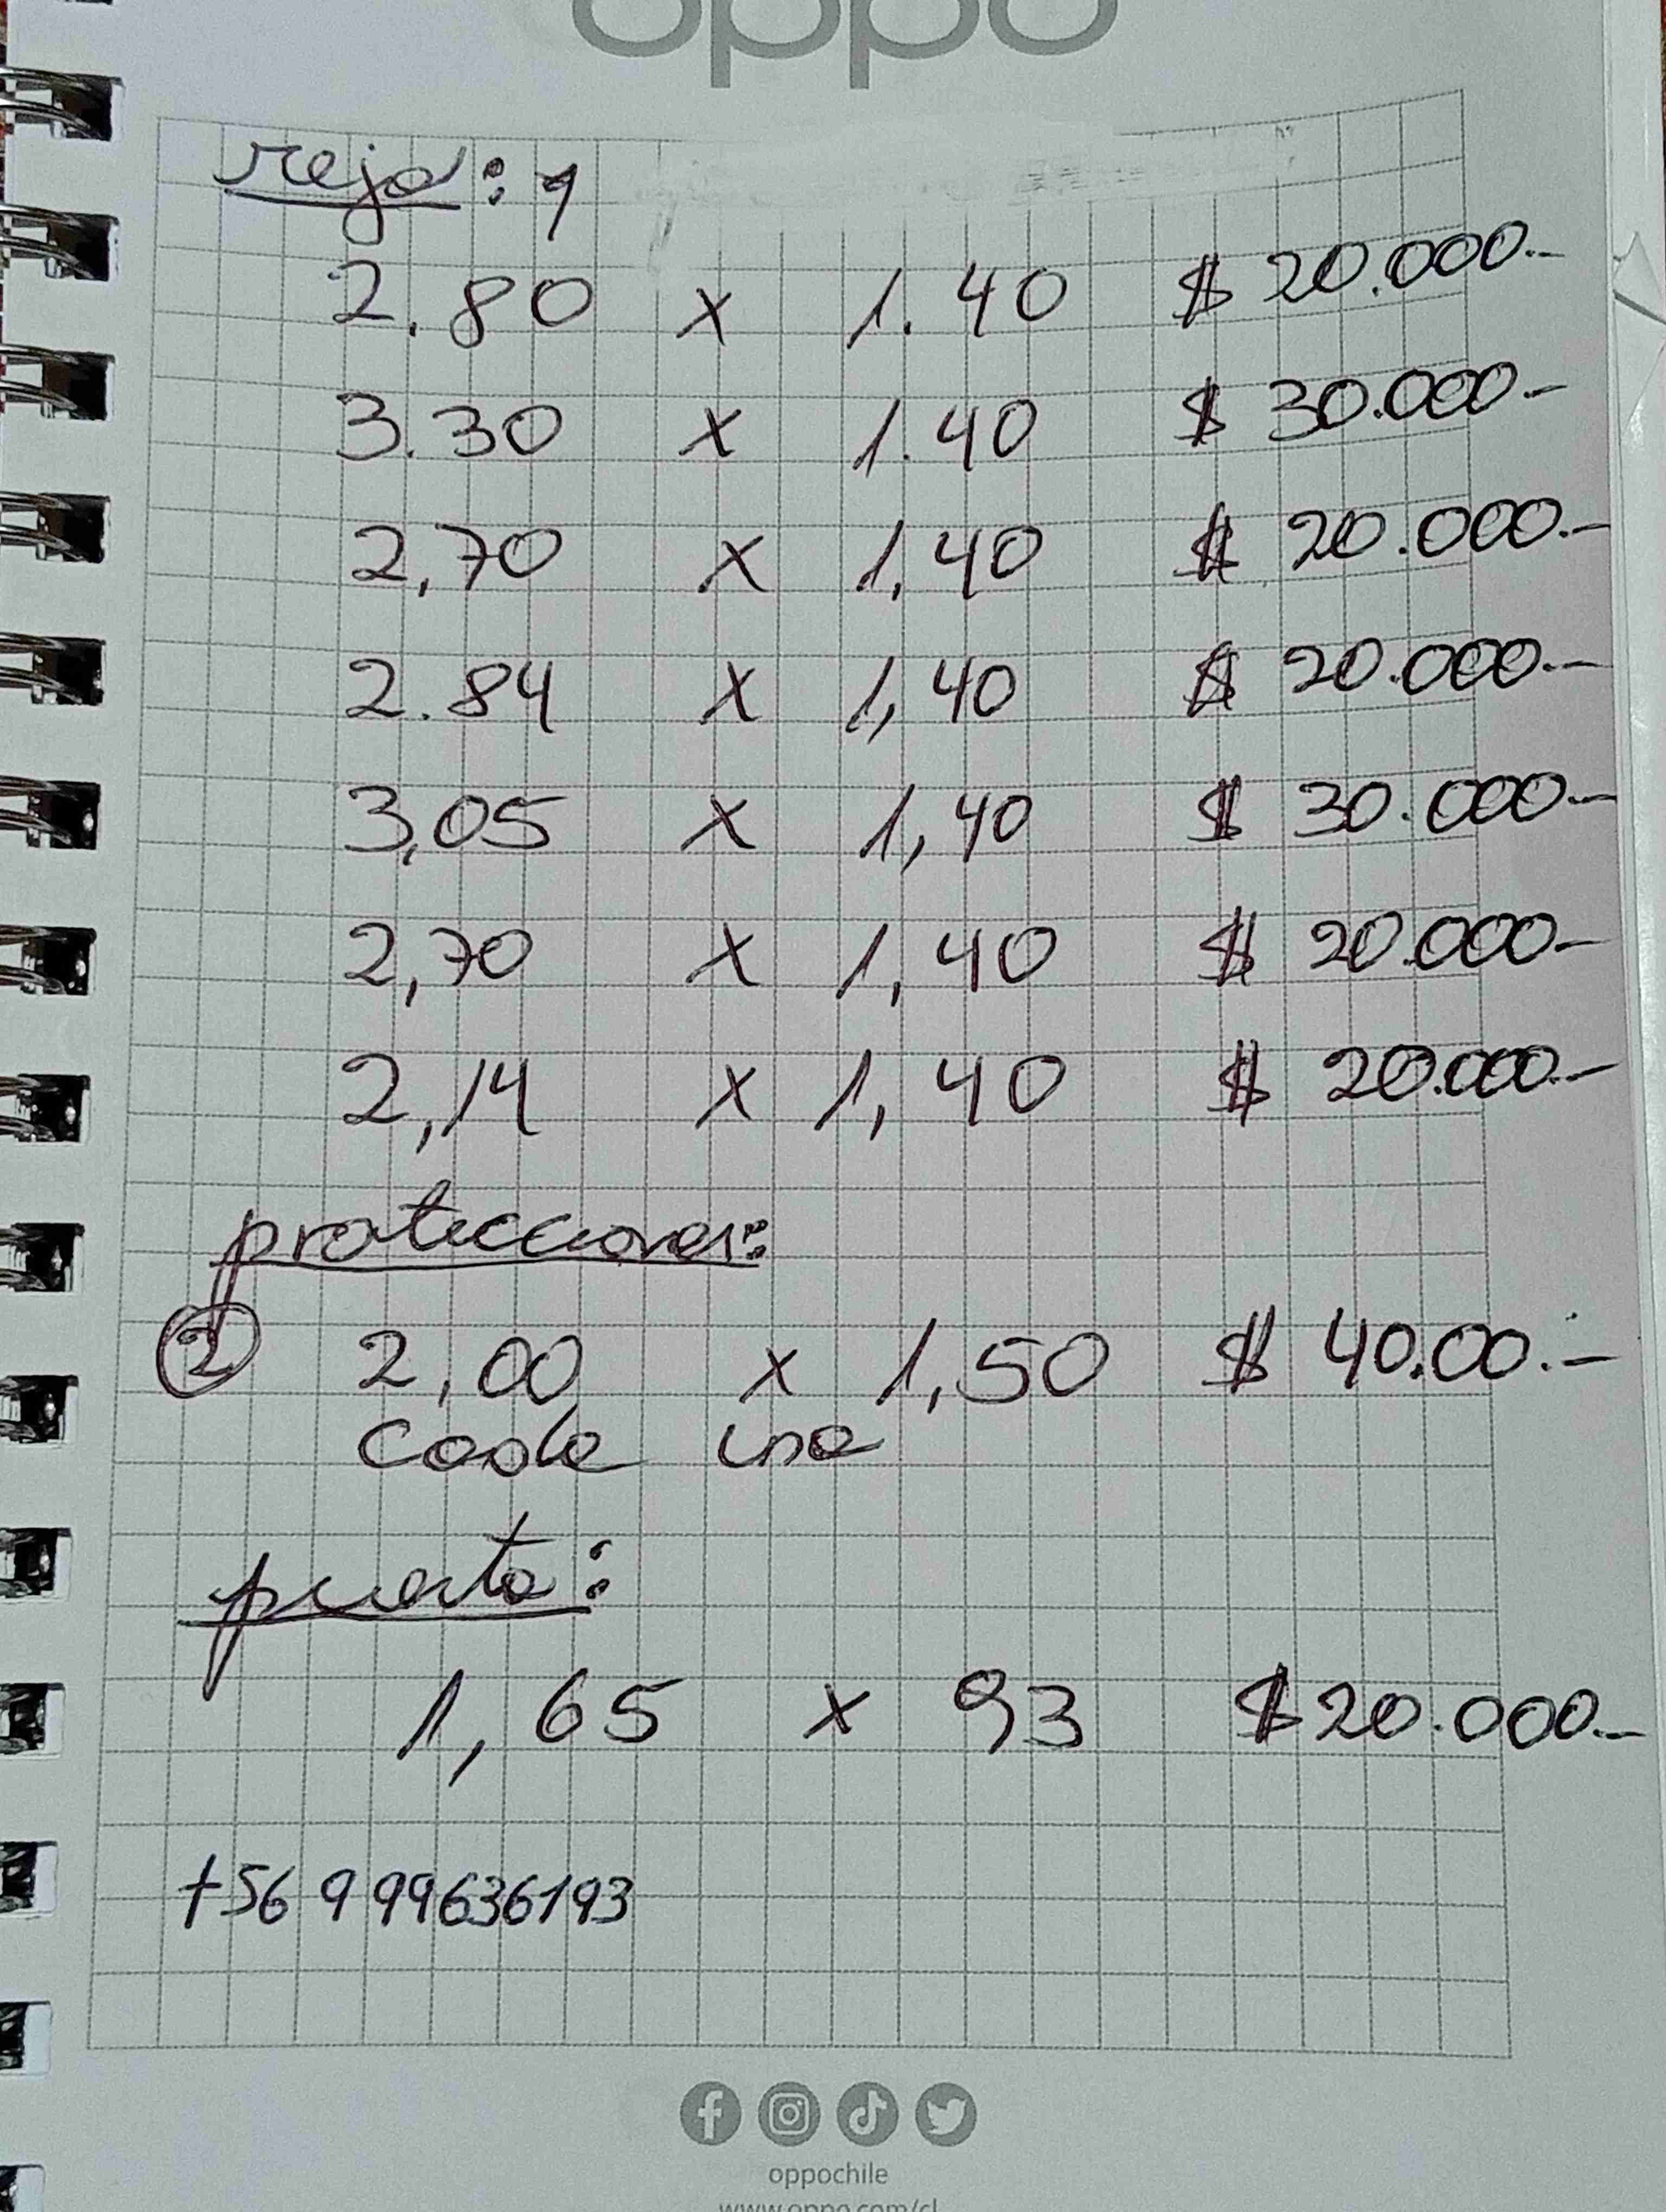 oppo
reja: 1
2.80 x 1.40 $ 20.000.-
3.30 x 1.40 $ 30.000.-
2,70 x 1,40 $ 20.000.-
2.84 x 1,40 $ 20.000.-
3,05 x 1,40 $ 30.000.-
2,70 x 1,40 $ 20.000-
2,14 x 1,40 $ 20.000.-
protecciones:
② 2,00 x 1,50 $ 40.00.-
cada una
puerta:
1,65 x 93 $ 20.000.-
+56 9 99636193
oppochile
www.oppo.com/cl